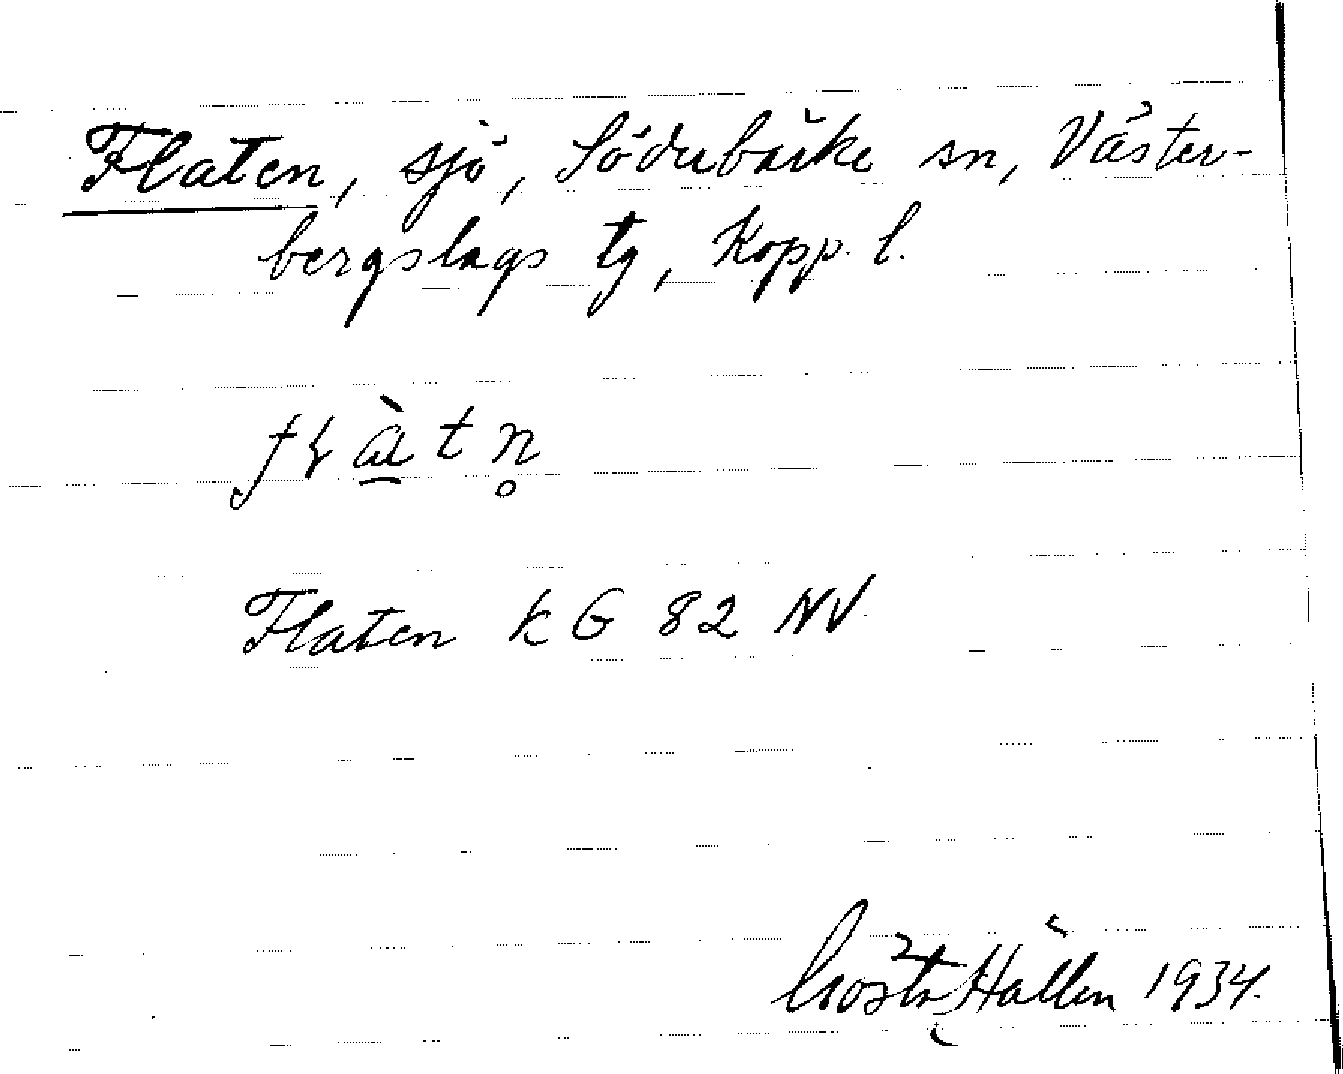 Flaten, sjö, Söderbärke sn, Väster-
bergslags tg, Kopp. l.
Flaten kG 82 NV
Gösta Hallén 1934.